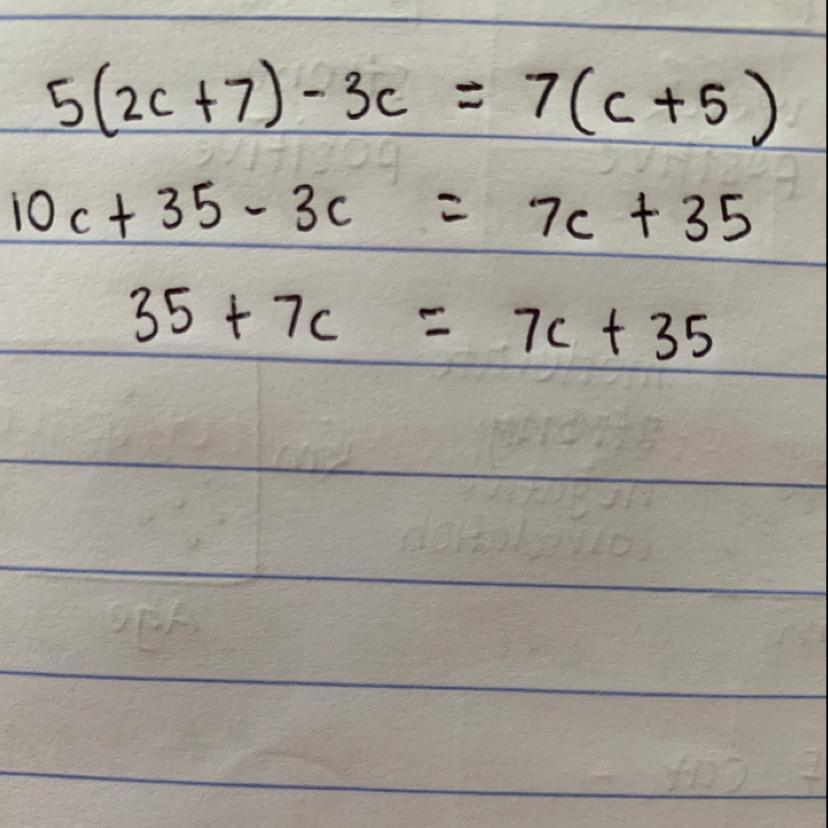 5(2c+7)-3c = 7(c+5)
10c+35-3c = 7c+35
35+7c = 7c+35